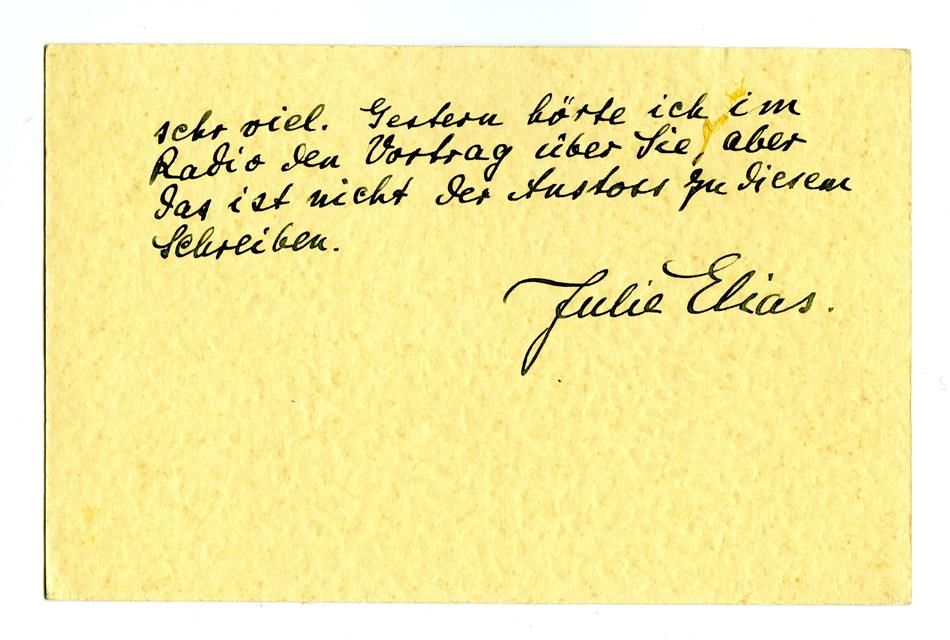 sehr viel. Gestern hörte ich im
Radio den Vortrag über Sie, aber
das ist nicht der Anstoss zu diesem
Schreiben.
Julie Elias.